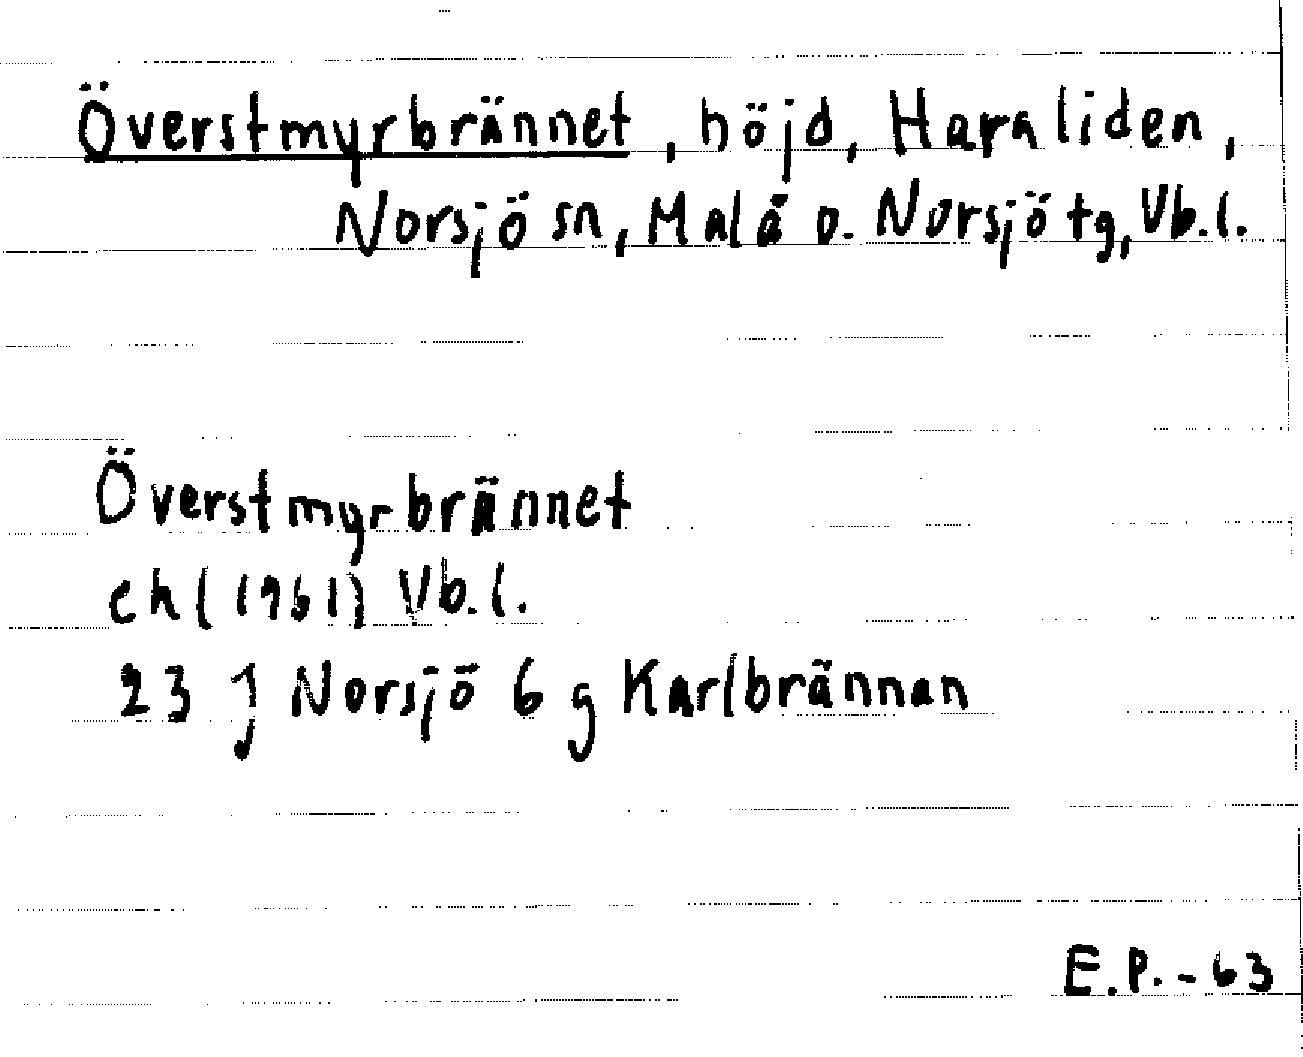 Överstmyrbrännet, höjd, Haraliden,
Norsjö sn, Malå o. Norsjö tg, Vb.l.
Överstmyrbrännet
ek (1961) Vb.l.
23 J Norsjö 6 g Karlbrännan
E.P.-63